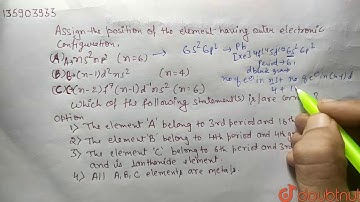 135903933
Assign the position of the element having outer electronic
configuration.
(A) ns² np² (n=6) → 6s² 6p² → Pb
[Xe] 4f¹⁴ 5d¹⁰ 6s² 6p²
(B) (n-1)d² ns² (n=4)
period → 6
(C) (n-2)f⁷ (n-1)d¹ ns² (n=6)
4 +
Which of the following statement(s) is/are
Option
1) The element 'A' belong to 3rd period and 16th
2) The element 'B' belong to 4th period and 4th
3) The element 'C' belong to 6th period and 3rd
and is lanthanide element.
4) All A, B, C elements are metals.
doubtnut